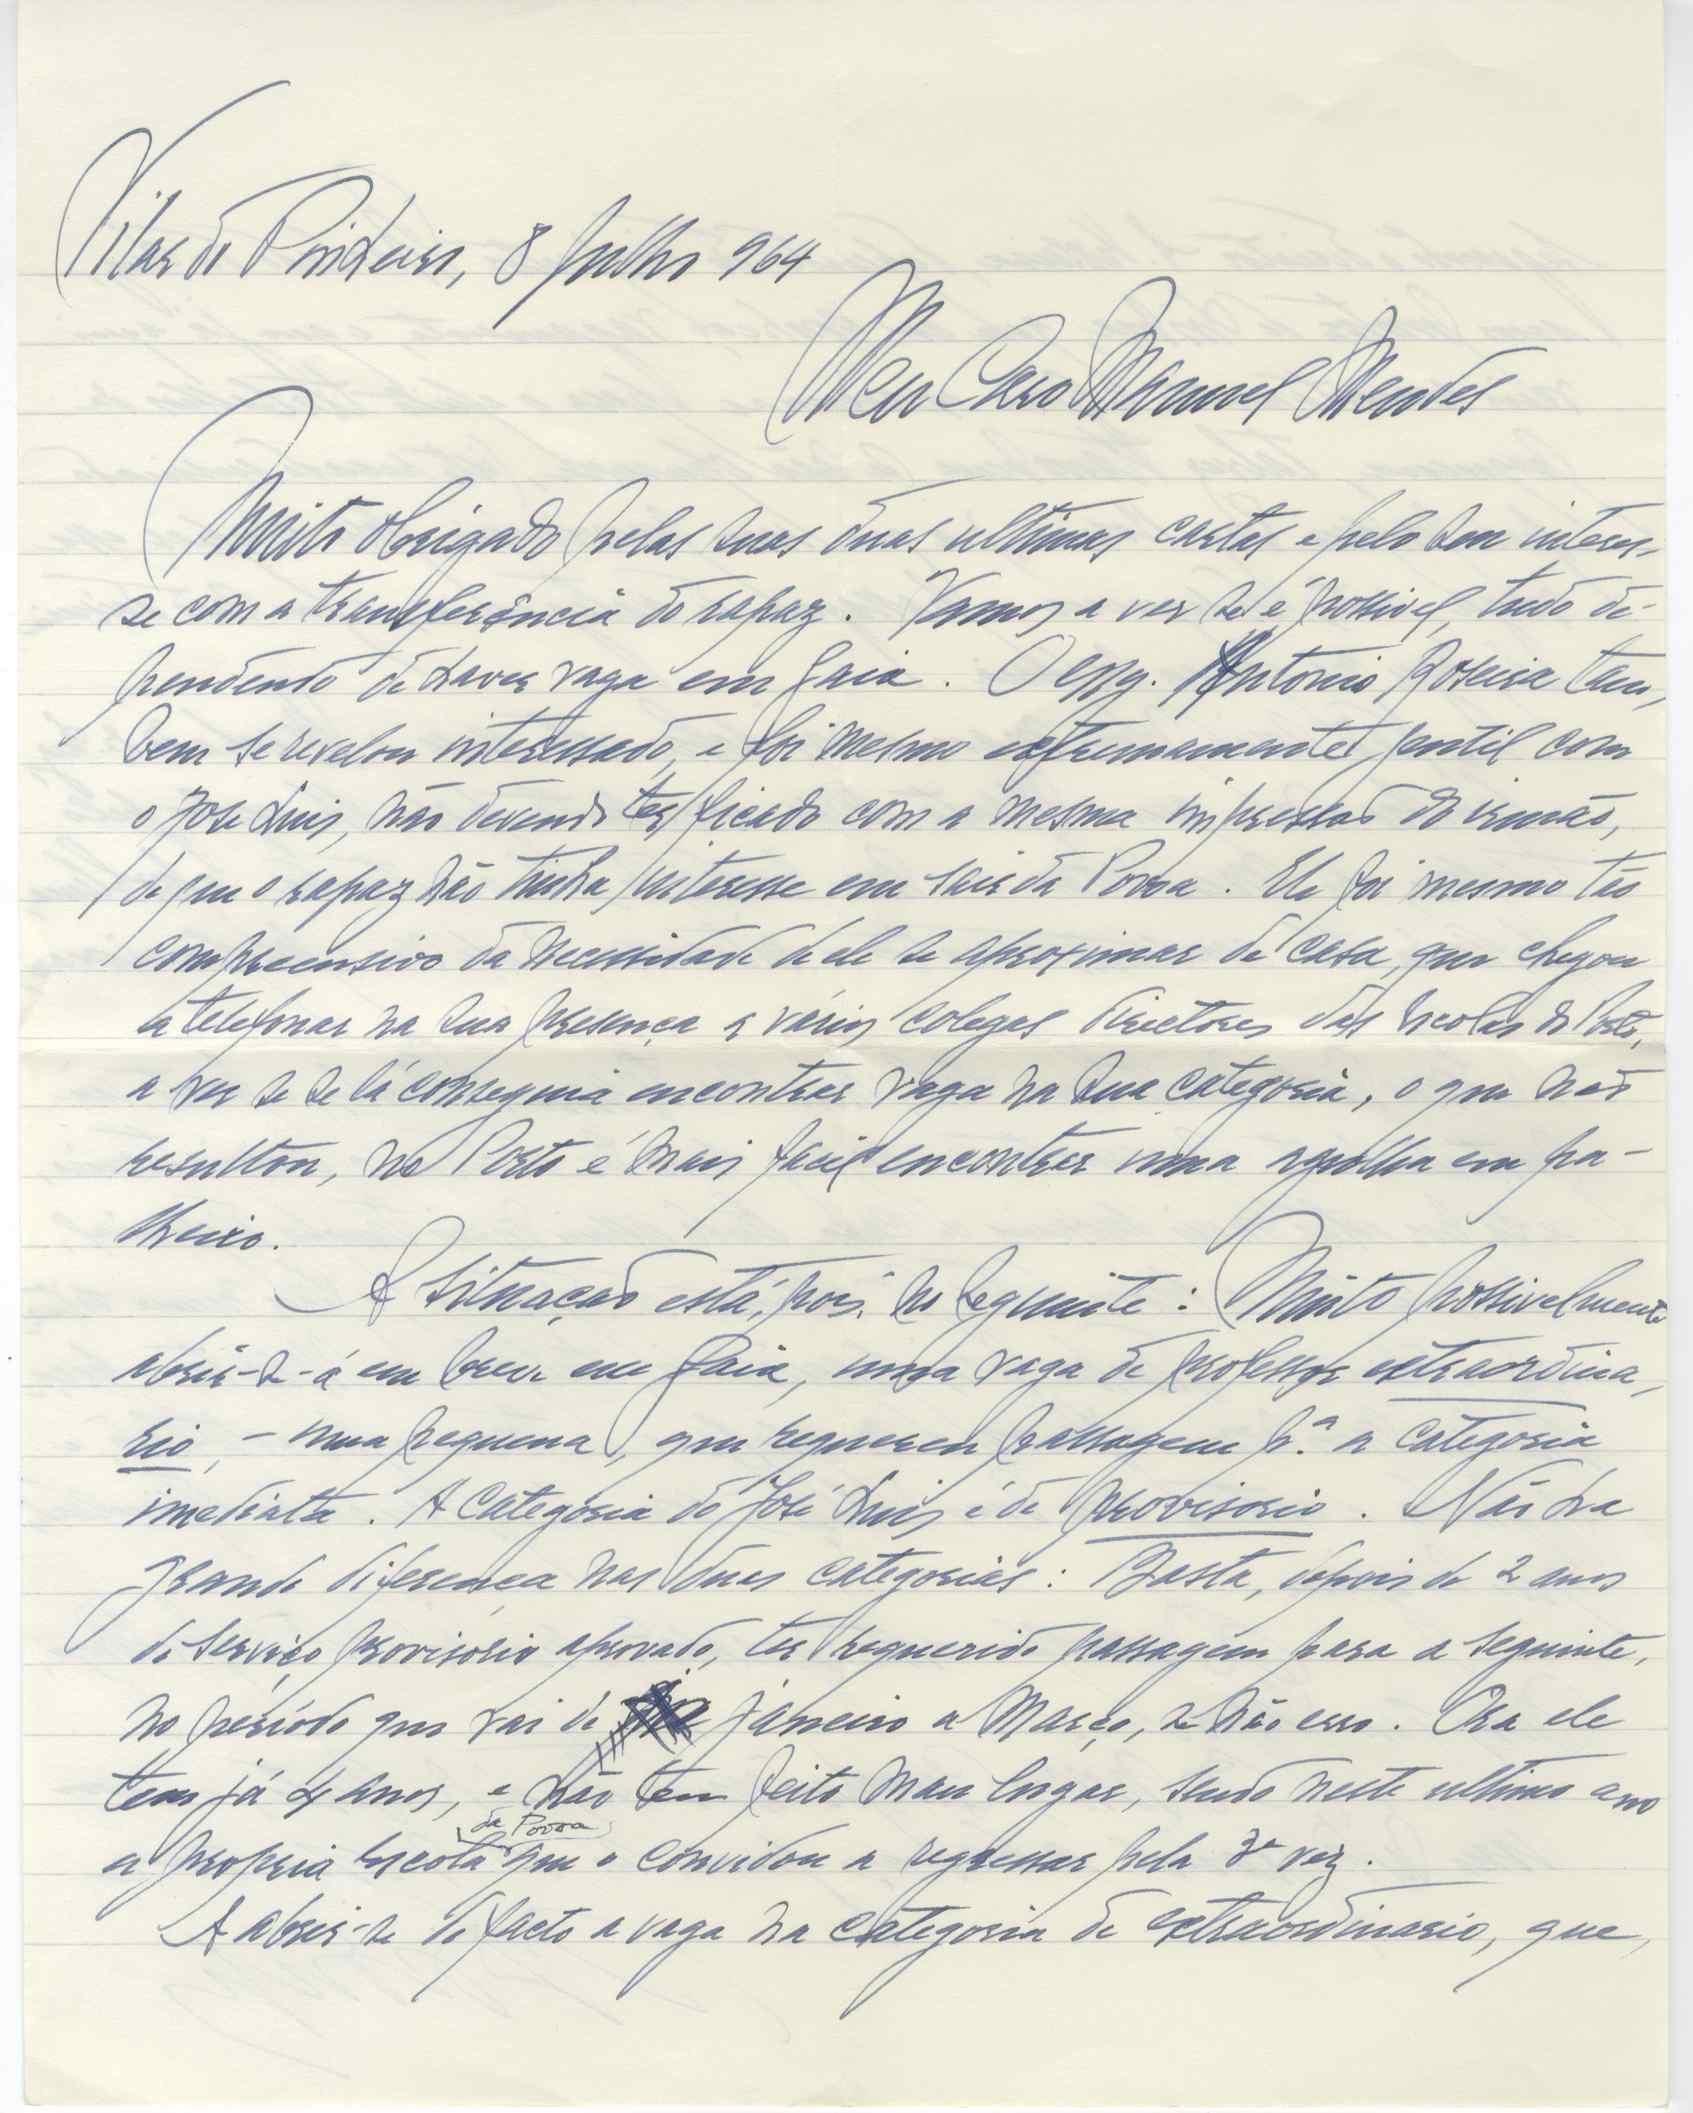 Vilar do Pinheiro, 8 Julho 964
Meu Caro Manuel Mendes
Muito obrigado pelas suas duas ultimas cartas e pelo seu interes-
se com a transferência do rapaz. Vamos a ver se é possivel, tudo de-
pendendo de haver vaga em Gaia. O Antonio Roseira tam-
bem se revelou interessado, e foi mesmo extremamente gentil com
o José Luis, não devendo ter ficado com a mesma impressão do irmão,
de que o rapaz não tinha interesse em sair da Povoa. Ele foi mesmo tão
compreensivo da necessidade dele se aproximar de casa, que chegou
a telefonar na sua presença a vários colegas directores das Escolas do Porto,
a ver se se lá conseguia encontrar vaga na sua categoria, o que não
resultou, no Porto é mais facil encontrar uma agulha em pa-
lheiro.
A situação está, pois, no seguinte: Muito possivelmente
abrir-se-á em breve em Gaia, uma vaga de professor extraordina-
rio, - uma pequena, que requereu passagem p.ª a categoria
imediata. A categoria do José Luis é de provisorio. Não ha
grande diferença nas duas categorias: Basta, depois de 2 anos
de serviço provisório aprovado, ter requerido passagem para a seguinte,
no período que vai de Janeiro a Março, se não erro. Ora ele
tem já 4 anos, e não tem feito mau lugar, sendo neste ultimo ano
a propria Escola da Povoa que o convidou a regressar pela 3ª vez.
A abrir-se de facto a vaga na categoria de extraordinario, que,